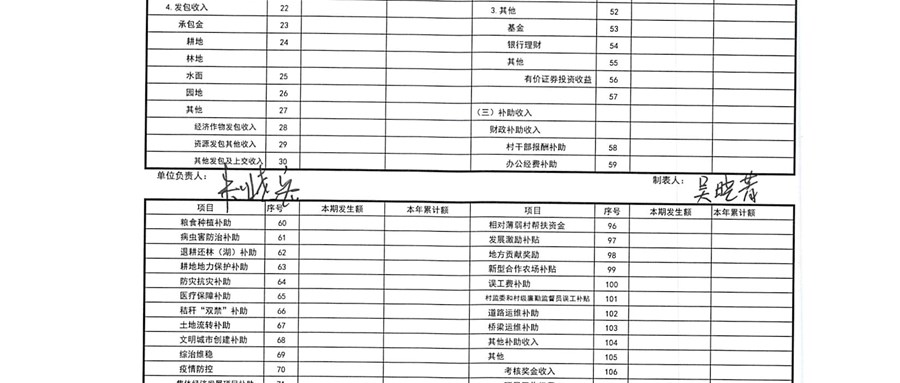 4. 发包收入 22 3. 其他 52
承包金 23 基金 53
耕地 24 银行理财 54
林地 其他 55
水面 25 有价证券投资收益 56
园地 26 57
其他 27 （三）补助收入
经济作物发包收入 28 财政补助收入
资源发包其他收入 29 村干部报酬补助 58
其他发包及上交收入 30 办公经费补助 59
单位负责人： 制表人：吴晓菁
项目 序号 本期发生额 本年累计额 项目 序号 本期发生额 本年累计额
粮食种植补助 60 相对薄弱村帮扶资金 96
病虫害防治补助 61 发展激励补贴 97
退耕还林（湖）补助 62 地方贡献奖励 98
耕地地力保护补助 63 新型合作农场补贴 99
防灾抗灾补助 64 误工费补助 100
医疗保障补助 65 村监委和村级廉勤监督员误工补贴 101
秸秆“双禁”补助 66 道路运维补助 102
土地流转补助 67 桥梁运维补助 103
文明城市创建补助 68 其他补助收入 104
综治维稳 69 其他 105
疫情防控 70 考核奖金收入 106